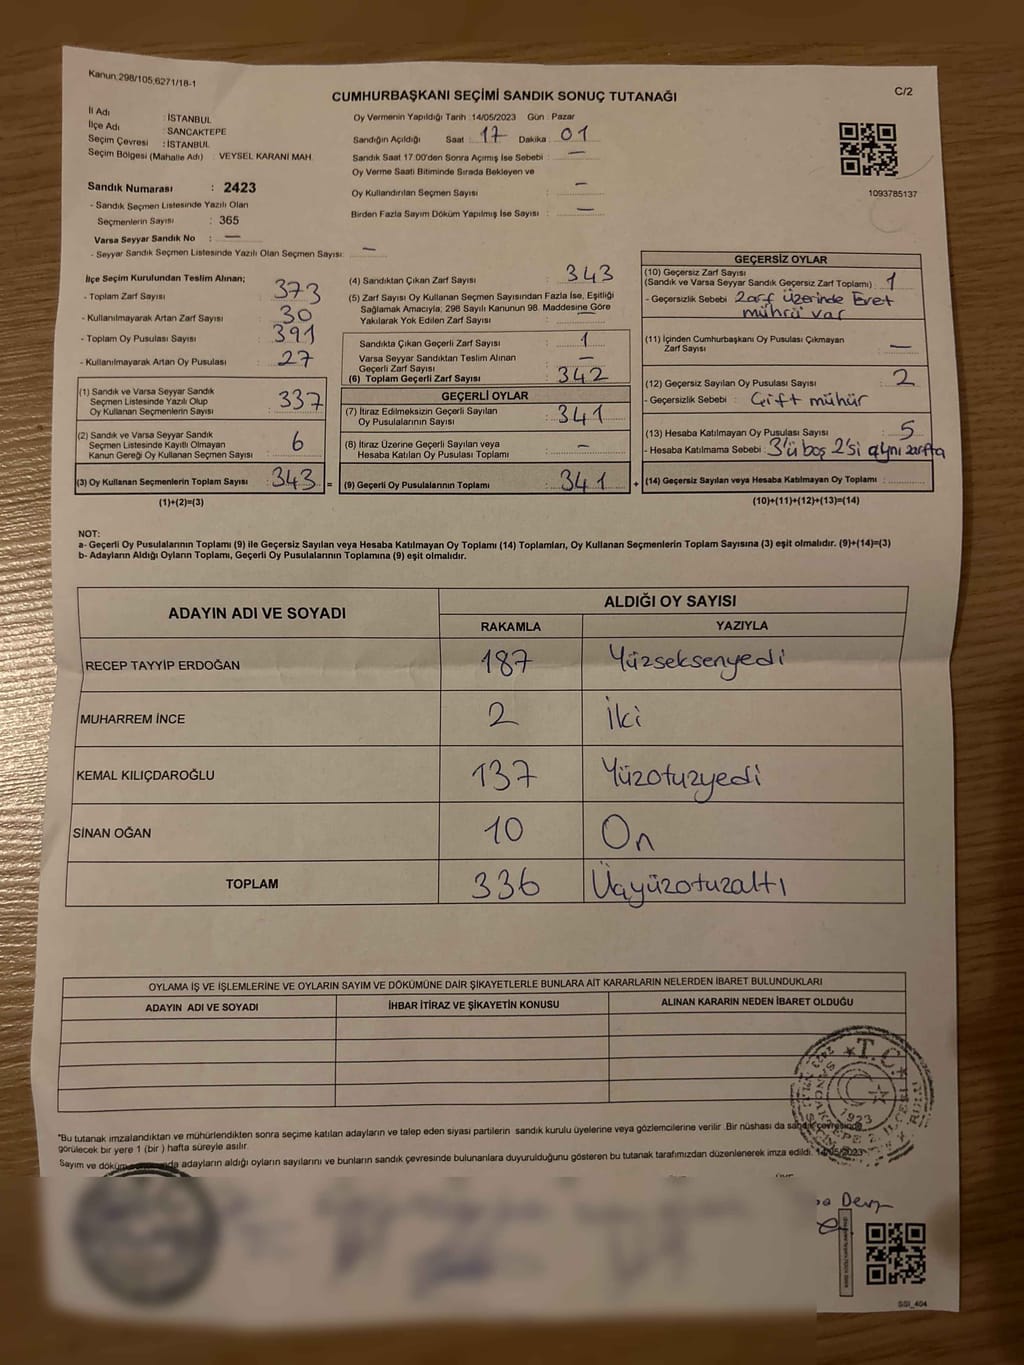 Kanun.298/105,6271/18-1
C/2
CUMHURBAŞKANI SEÇİMİ SANDIK SONUÇ TUTANAĞI
İl Adı : İSTANBUL
İlçe Adı : SANCAKTEPE
Seçim Çevresi : İSTANBUL
Seçim Bölgesi (Mahalle Adı) : VEYSEL KARANİ MAH.
Sandık Numarası : 2423
- Sandık Seçmen Listesinde Yazılı Olan
Seçmenlerin Sayısı : 365
Varsa Seyyar Sandık No : —
- Seyyar Sandık Seçmen Listesinde Yazılı Olan Seçmen Sayısı: —
Oy Vermenin Yapıldığı Tarih :14/05/2023 Gün : Pazar
Sandığın Açıldığı Saat : 17 Dakika : 01
Sandık Saat 17:00'den Sonra Açımış İse Sebebi : —
Oy Verme Saati Bitiminde Sırada Bekleyen ve
Oy Kullandırılan Seçmen Sayısı : —
Birden Fazla Sayım Döküm Yapılmış İse Sayısı : —
1093785137
İlçe Seçim Kurulundan Teslim Alınan;
- Toplam Zarf Sayısı : 373
- Kullanılmayarak Artan Zarf Sayısı : 30
- Toplam Oy Pusulası Sayısı : 391
- Kullanılmayarak Artan Oy Pusulası : 27
(1) Sandık ve Varsa Seyyar Sandık
Seçmen Listesinde Yazılı Olup
Oy Kullanan Seçmenlerin Sayısı : 337
(2) Sandık ve Varsa Seyyar Sandık
Seçmen Listesinde Kayıtlı Olmayan
Kanun Gereği Oy Kullanan Seçmen Sayısı : 6
(3) Oy Kullanan Seçmenlerin Toplam Sayısı : 343 =
(1)+(2)=(3)
(4) Sandıktan Çıkan Zarf Sayısı : 343
(5) Zarf Sayısı Oy Kullanan Seçmen Sayısından Fazla İse, Eşitliği
Sağlamak Amacıyla; 298 Sayılı Kanunun 98. Maddesine Göre
Yakılarak Yok Edilen Zarf Sayısı : —
Sandıkta Çıkan Geçerli Zarf Sayısı : 1
Varsa Seyyar Sandıktan Teslim Alınan
Geçerli Zarf Sayısı : —
(6) Toplam Geçerli Zarf Sayısı : 342
GEÇERLİ OYLAR
(7) İtiraz Edilmeksizin Geçerli Sayılan
Oy Pusulasının Sayısı : 341
(8) İtiraz Üzerine Geçerli Sayılan veya
Hesaba Katılan Oy Pusulası Toplamı : —
(9) Geçerli Oy Pusulalarının Toplamı : 341 +
GEÇERSİZ OYLAR
(10) Geçersiz Zarf Sayısı
(Sandık ve Varsa Seyyar Sandık Geçersiz Zarf Toplamı) : 1
- Geçersizlik Sebebi : Zarf üzerinde Evet
mührü var
(11) İçinden Cumhurbaşkanı Oy Pusulası Çıkmayan
Zarf Sayısı : —
(12) Geçersiz Sayılan Oy Pusulası Sayısı : 2
- Geçersizlik Sebebi : Çift mühür
(13) Hesaba Katılmayan Oy Pusulası Sayısı : 5
- Hesaba Katılmama Sebebi : 3'ü boş 2'si aynı zarfta
(14) Geçersiz Sayılan veya Hesaba Katılmayan Oy Toplamı :
(10)+(11)+(12)+(13)=(14)
NOT:
a- Geçerli Oy Pusulalarının Toplamı (9) ile Geçersiz Sayılan veya Hesaba Katılmayan Oy Toplamı (14) Toplamları, Oy Kullanan Seçmenlerin Toplam Sayısına (3) eşit olmalıdır. (9)+(14)=(3)
b- Adayların Aldığı Oyların Toplamı, Geçerli Oy Pusulalarının Toplamına (9) eşit olmalıdır.
ADAYIN ADI VE SOYADI
ALDIĞI OY SAYISI
RAKAMLA YAZIYLA
RECEP TAYYİP ERDOĞAN 187 Yüzseksenyedi
MUHARREM İNCE 2 İki
KEMAL KILIÇDAROĞLU 137 Yüzotuzyedi
SİNAN OĞAN 10 On
TOPLAM 336 Üçyüzotuzaltı
OYLAMA İŞ VE İŞLEMLERİNE VE OYLARIN SAYIM VE DÖKÜMÜNE DAİR ŞİKAYETLERLE BUNLARA AİT KARARLARIN NELERDEN İBARET BULUNDUKLARI
ADAYIN ADI VE SOYADI İHBAR İTİRAZ VE ŞİKAYETİN KONUSU ALINAN KARARIN NEDEN İBARET OLDUĞU
T.C.
1923
*Bu tutanak imzalandıktan ve mühürlendikten sonra seçime katılan adayların ve talep eden siyasi partilerin sandık kurulu üyelerine veya gözlemcilerine verilir .Bir nüshası da sandık çevresinde
görülecek bir yere 1 (bir ) hafta süreyle asılır.
Sayım ve döküm adayların aldığı oyların sayılarını ve bunların sandık çevresinde bulunanlara duyurulduğunu gösteren bu tutanak tarafımızdan düzenlenerek imza edildi. 14/05/2023
SSI_404